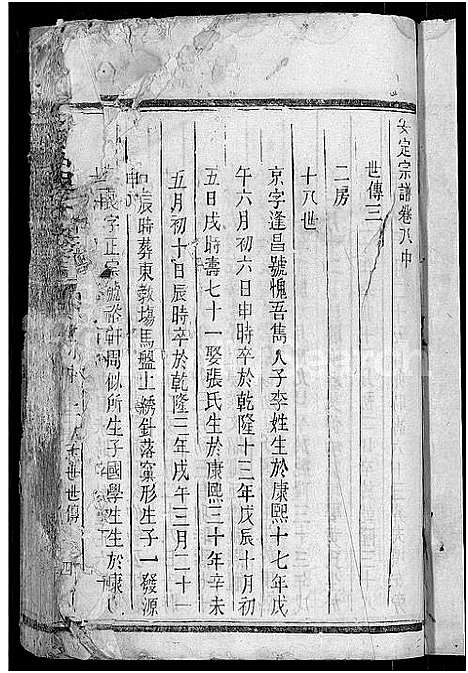 安定宗譜卷八中
世傳三
二房
十八世
京字逢昌號愧吾雋人子李姓生於康熙十七年戊
午六月初六日申時卒於乾隆十三年戊辰十月初
五日戌時壽七十一娶張氏生於康熙三十年辛未
五月初十日辰時卒於乾隆三年戊午三月二十一
日辰時葬東敦塢馬盤上綉針落窠形生子一發源
字正宗號裕軒周似所生子國學生生於康
世傳